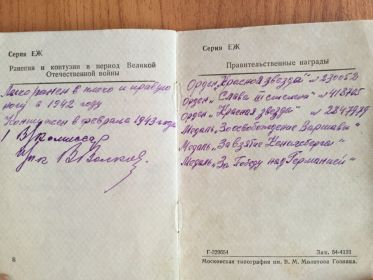 Серия ЕЖ
Ранения и контузии в период Великой
Отечественной войны
ранен в и правую
ногу в 1942 году
Контужен в феврале 1943 года
В. Волков
8
Серия ЕЖ
Правительственные награды
Орден „Красная звезда" №
Орден „Слава III степени" №
Орден „Красная звезда" №
Медаль „За освобождение Варшавы"
Медаль „За взятие Кенигсберга"
Медаль „За Победу над Германией"
Г-829654 Зак. 54-4133
Московская типография им. В. М. Молотова Гознака.